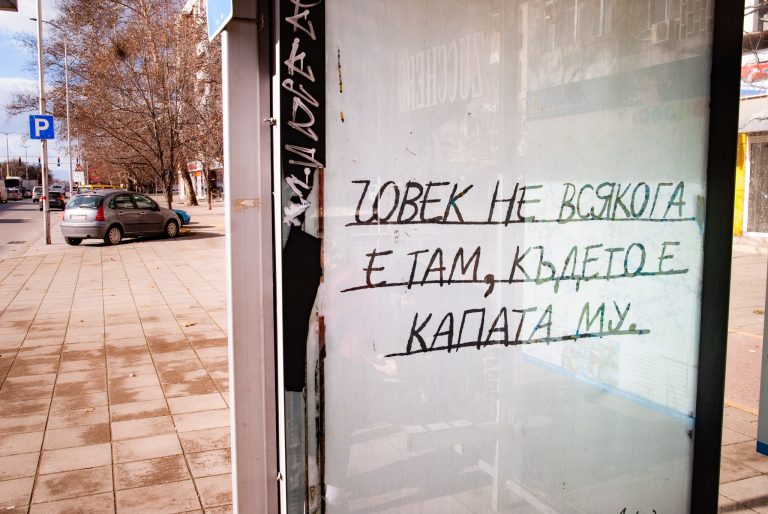 P
ЧОВЕК НЕ ВСЯКОГА
Е ТАМ, КЪДЕТО Е
КАПАТА МУ.